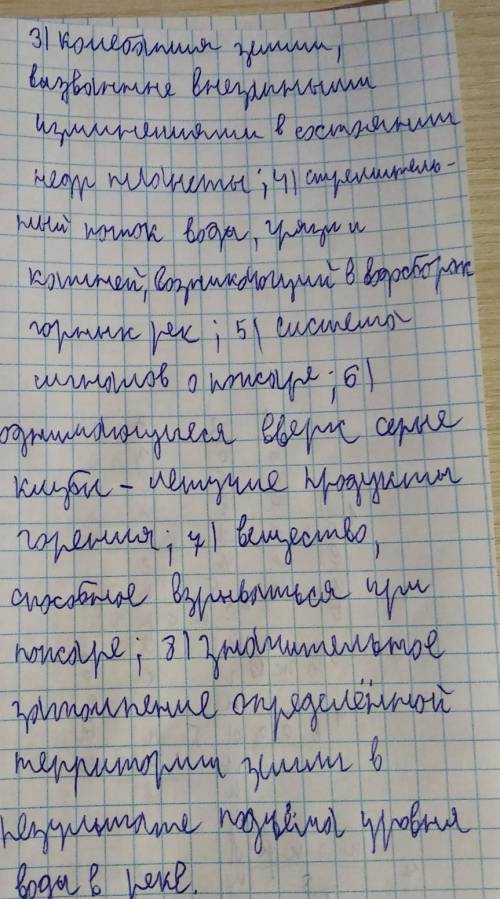 3) колебания земли,
вызванные внезапными
изменениями в состоянии
недр планеты; 4) стремитель-
ный поток воды, грязи и
камней, возникающий в водосборах
горных рек; 5) система
сигналов о пожаре; 6)
однимающиеся вверх серые
клубы - летучие продукты
горения; 7) вещество,
способное взрываться при
пожаре; 8) значительное
затопление определённой
территории земли в
результате подъёма уровня
воды в реке.